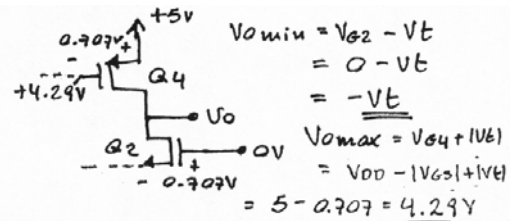 +5V
0.707V +
-
Q4
+4.29V
Vo
Q2
0V
+
- 0.707V
Vomin = VG2 - Vt
= 0 - Vt
= -Vt
Vomax = VG4 + |Vt|
= VDD - |VGS| + |Vt|
= 5 - 0.707 = 4.29V